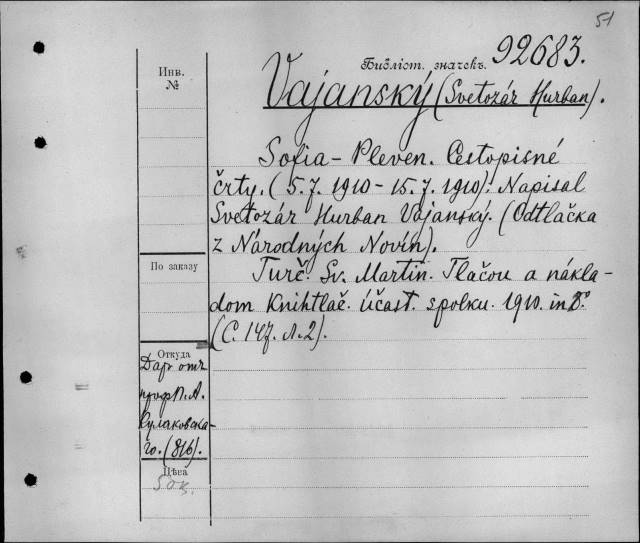 51
Библіот. значекъ 92683.
Инв.
№
Vajanský (Svetozár Hurban).
Sofia - Pleven. Cestopisné
črty. (5. 7. 1910 - 15. 7. 1910). Napisal
Svetozár Hurban Vajanský. (Odtlačka
z Národných Novín).
По заказу
Turč. Sv. Martin. Tlačou a nákla-
dom Knihtlač. účast. spolku. 1910. in 8°.
(C. 147. л. 2).
Откуда
Дар отъ
проф. П. А.
Кулаковска-
го. (816).
Цѣна
50 к.